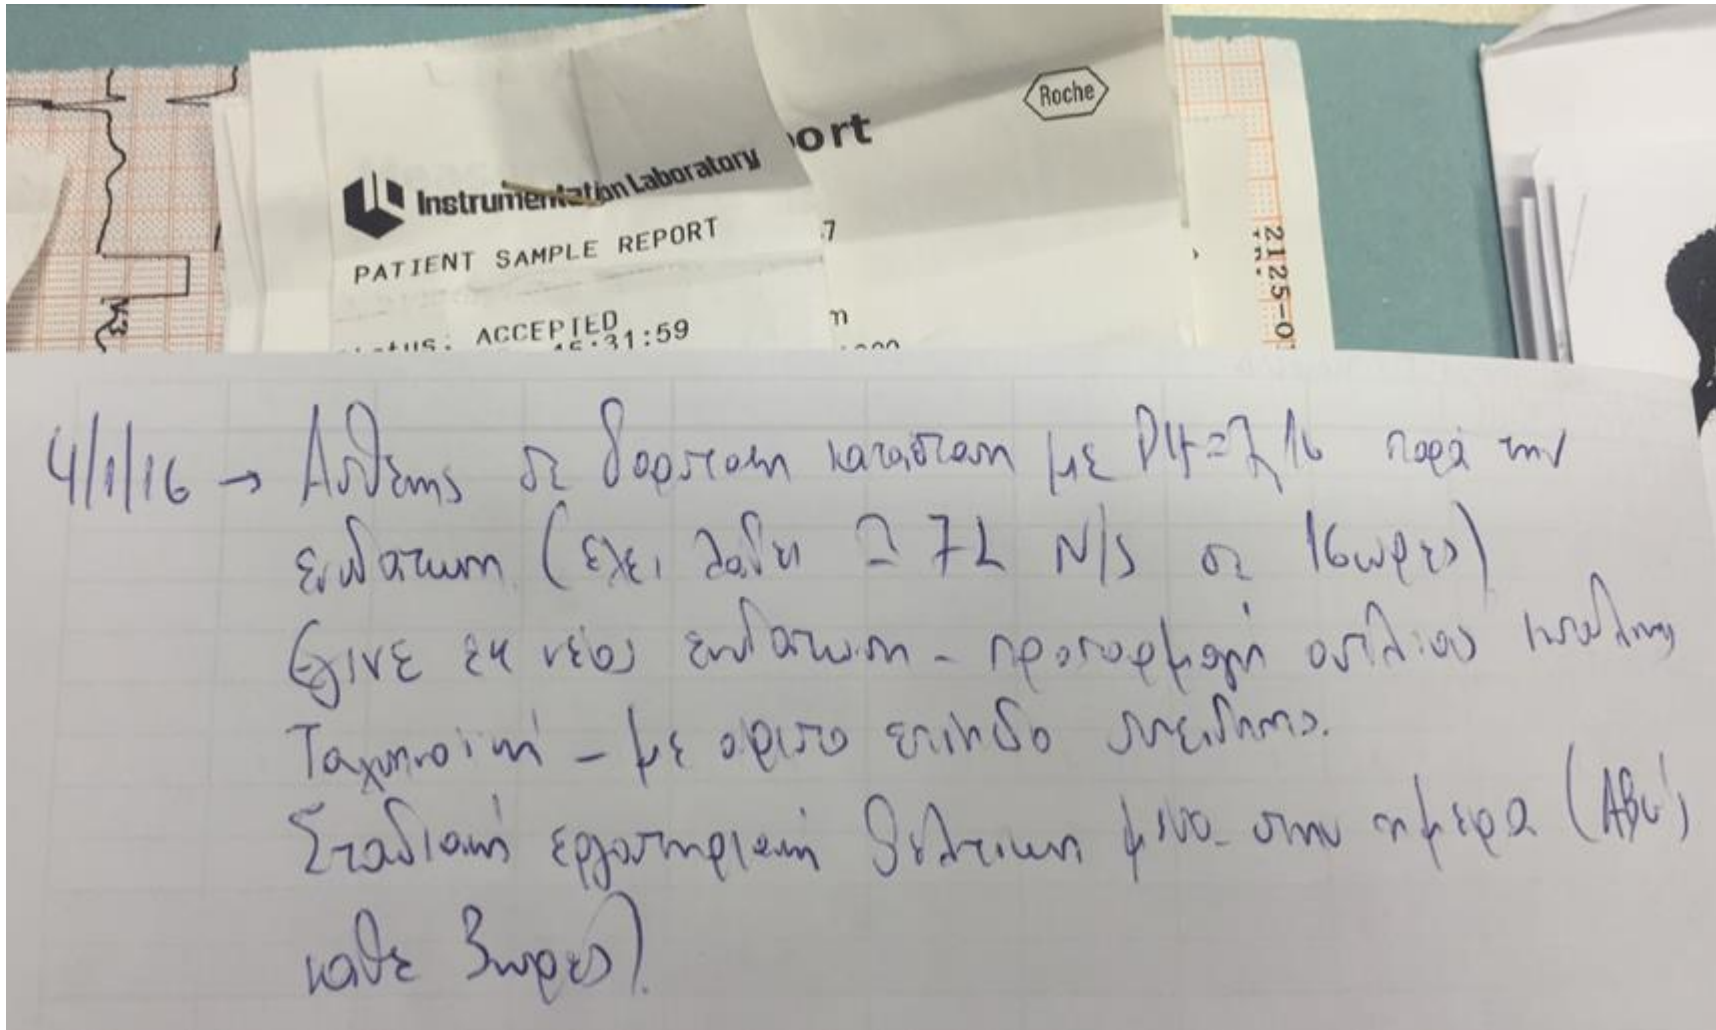 Roche
ort
Instrumentation Laboratory
PATIENT SAMPLE REPORT
7
atus: ACCEPTED
m
15:31:59
V3
21125-0
4/1/16 → Ασθενης σε βαρειαση κατασταση με PH=7,16 παρά την
ενυδατωση (εχει λαβει ≃ 7L N/S σε 16ωρες)
Εγινε εκ νέου ενυδατωση - προσαρμογή αντλίας ινσουλινης
Ταχυπνοϊκή - με αριστο επιπεδο συνειδησης.
Σταδιακή εργαστηριακή βελτιωση μεσα στην ημερα (ABG's
καθε 3ωρες).